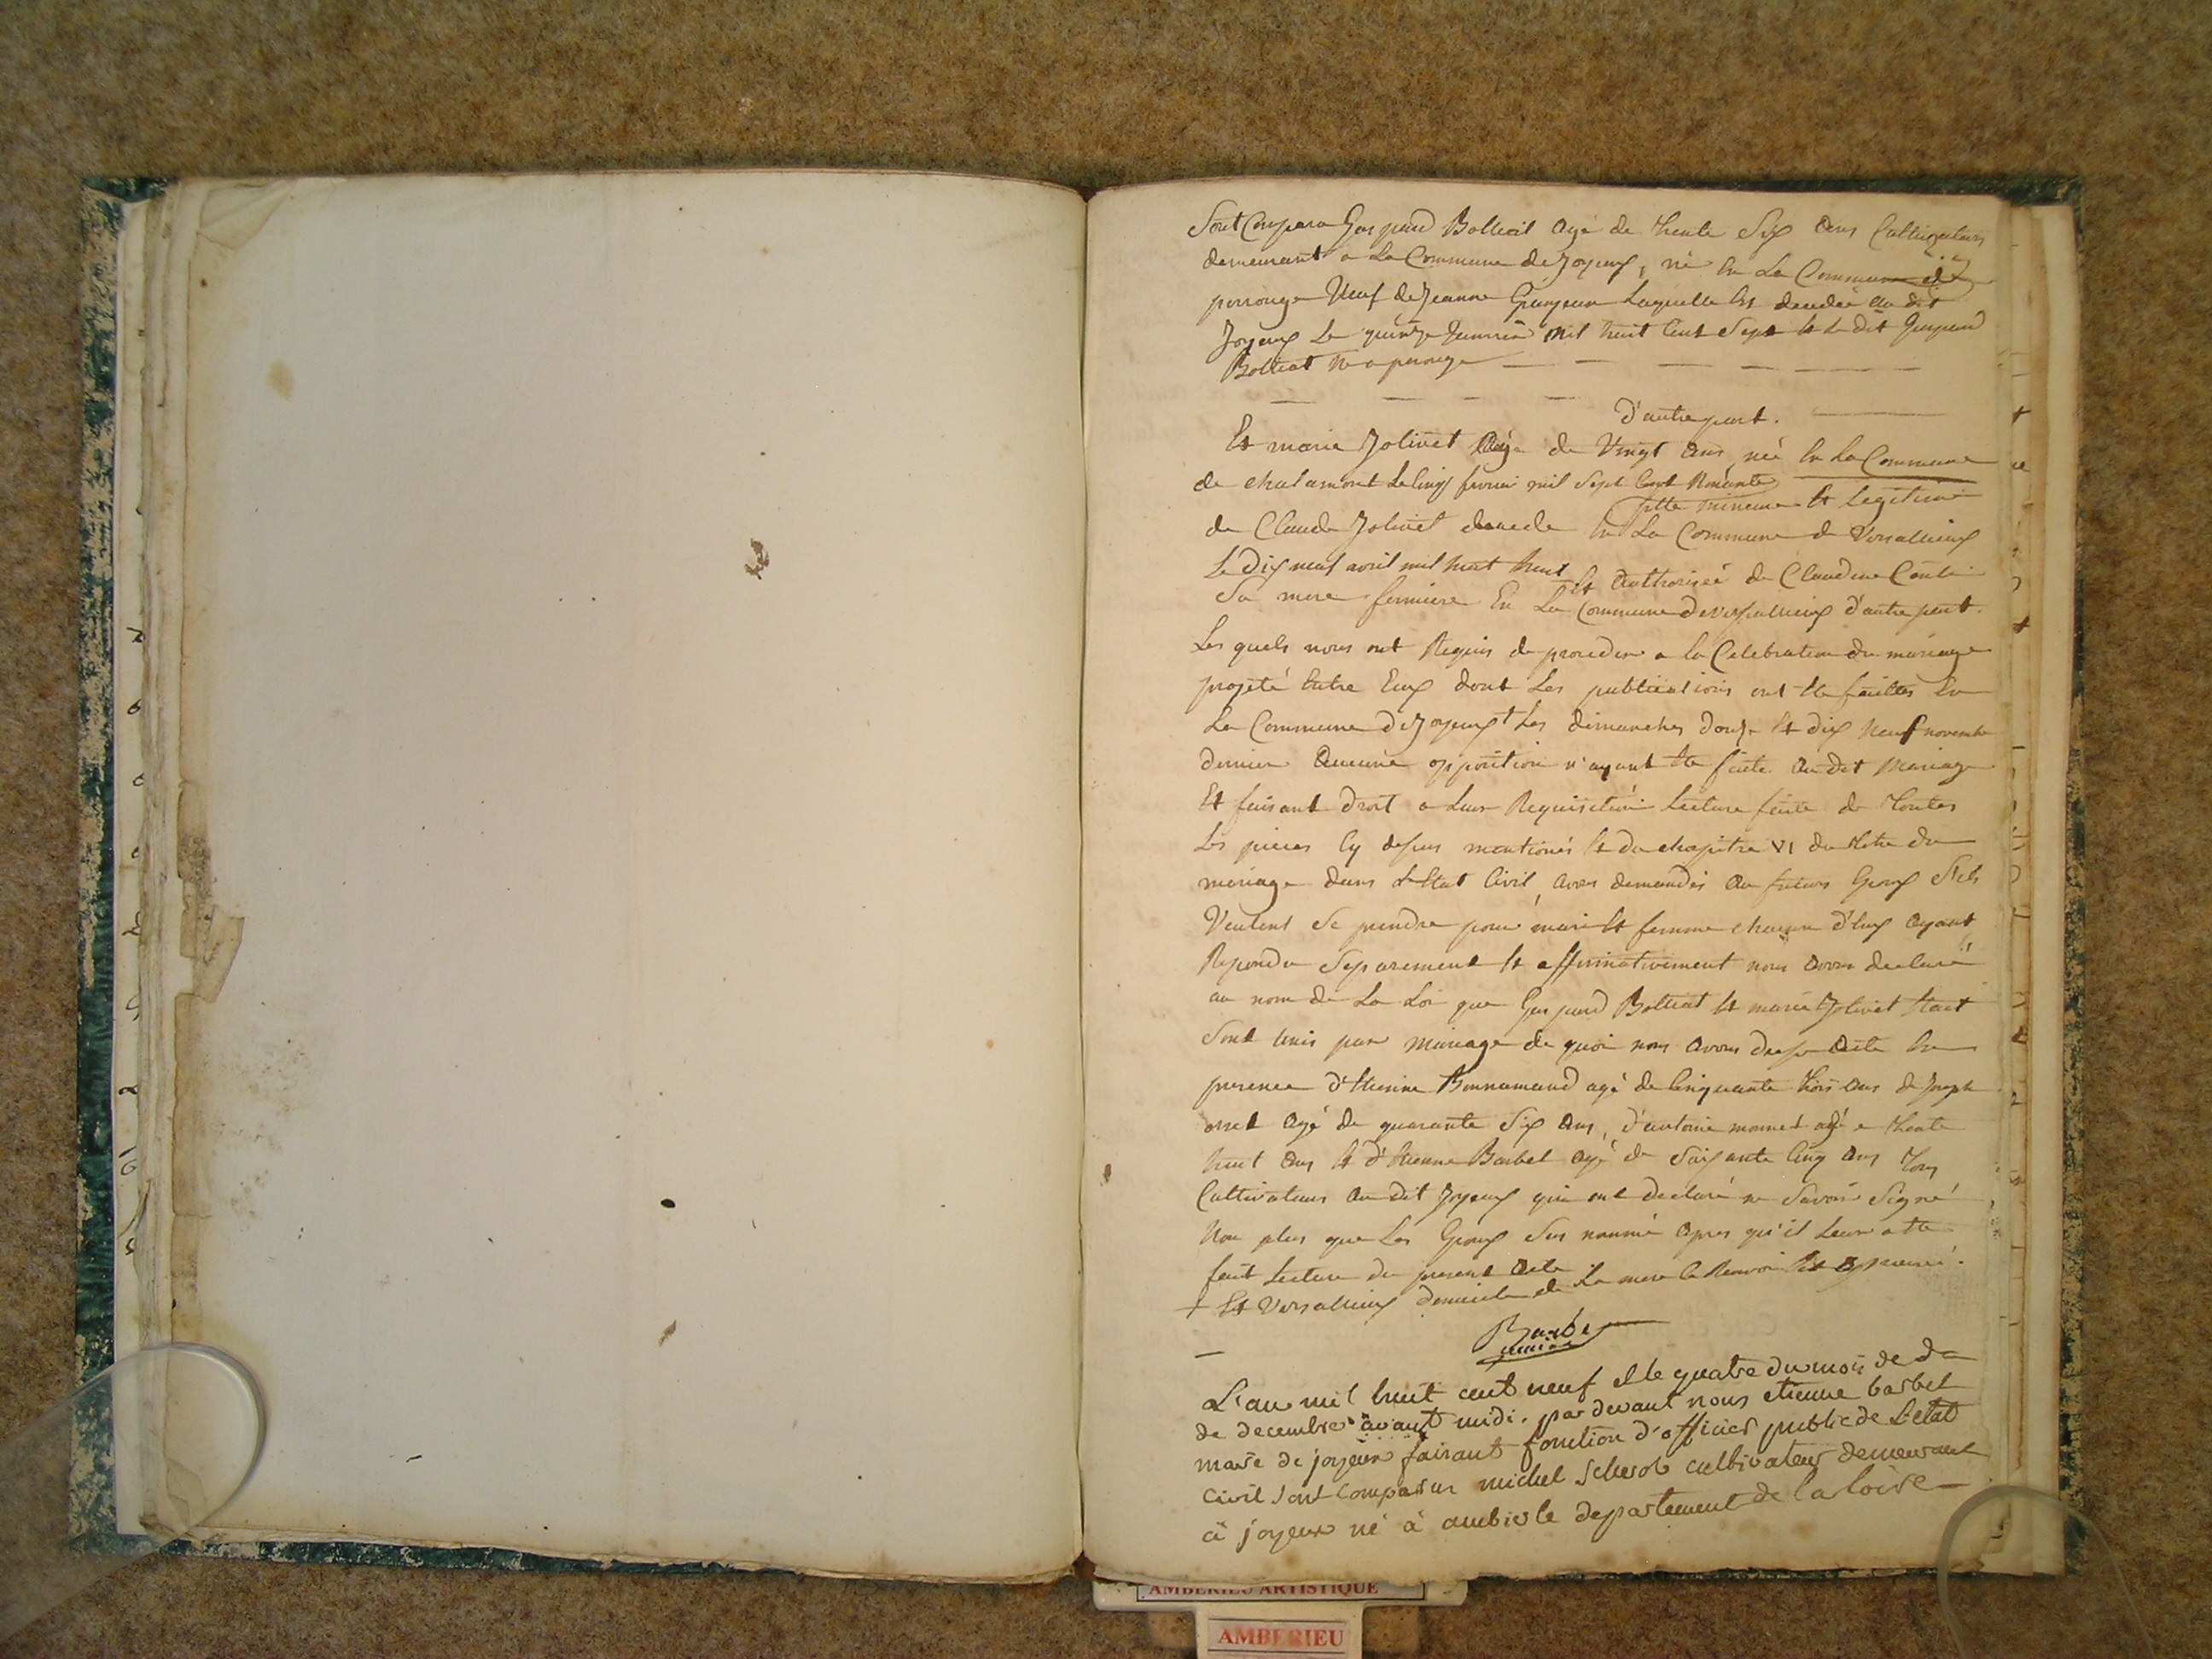 Sont Comparu Gaspard Bolliat agé de trente Six ans Cultivateur
demeurant a La Commune de Joyeux, né en La Commune de
perrouge Veuf de Jeanne laquelle est decedée au dit
Joyeux Le quinze Janvier mil huit Cent Sept et le dit Gaspard
Bolliat né a perouge
d'autre part.
Et marie Jolivet agée de Vingt ans, née en La Commune
de chalamont Le cinq fevrier mil Sept Cent
fille mineure et Legitime
de Claude Jolivet decede en La Commune de Versallieux
Le Dix neuf avril mil huit huit et authorisée de Claudine
Sa mere fermiere en La Commune de versallieux d'autre part.
Les quels nous ont Requis de proceder a la Celebration du mariage
projeté entre Eux dont Les publications ont ete faittes en
La Commune de Joyeux † Les dimanches douze et dix neuf novembre
dernier aucune opposition n'ayant ete faite au dit mariage
Et faisant droit a leur Requisition lecture faite de toutes
Les pieces Cy dessus mentionés et du chapitre VI du titre du
mariage dans L'etat Civil, avons demandés au futurs Epoux S'ils
Veulent Se prendre pour mari et femme chacun d'eux ayant
Repondu Separement et affirmativement nous avons declaré
au nom de La Loi que Gaspard Bolliat et marie Jolivet
Sont unis par mariage de quoi nous avons dressé acte en
presence d'Etienne Bonnamand agé de Cinquante trois ans de Joseph
agé de quarante Six ans, d'antoine monnet agé e trente
huit ans et d'Etienne Barbet agé de Soixante Cinq ans tous
Cultivateurs au dit Joyeux qui ont declaré ne Savoir Signé
Non plus que Les Epoux Sus nommé apres qu'il Leur a ete
fait Lecture du present acte
† Et Versallieux domicile de La mere le Renvoi est approuvé.
Barbet
L'an mil huit cent neuf et le quatre du mois de de
de decembre avant midi. par devant nous etienne barbet
maire de joyeux faisant fonction d'officier public de L'etat
Civil sont comparus michel cultivateur demeurant
à joyeux né à ambierle departement de la loire
AMBERIEU ARTISTIQUE
AMBERIEU